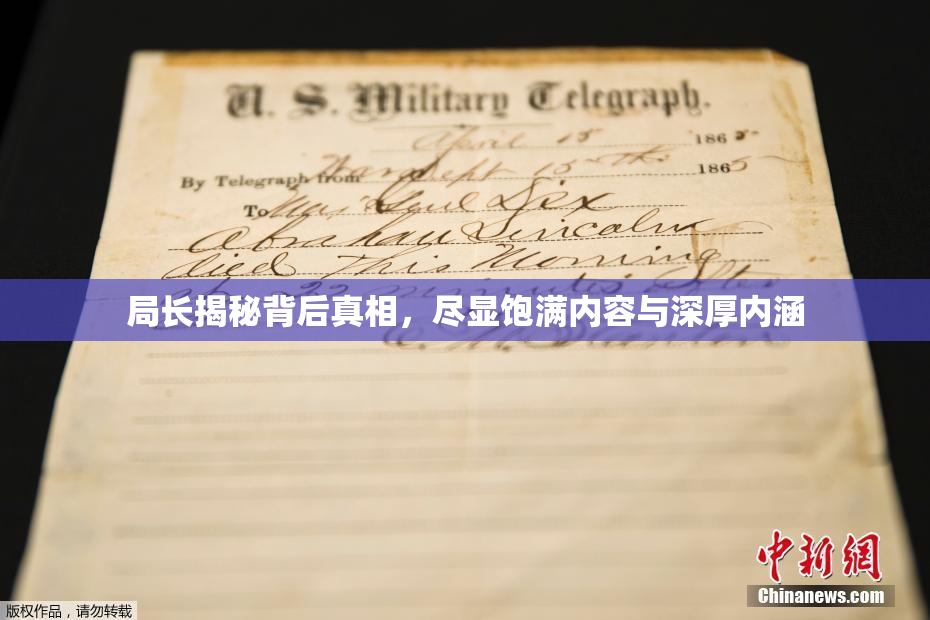 U. S. Military Telegraph.
April 15 1865
By Telegraph from War Dept 15th 1865
To Maj Genl Dix
Abraham Lincoln
died This Morning
at 22 minutes after
局长揭秘背后真相，尽显饱满内容与深厚内涵
E. M. Stanton
中新網
Chinanews.com
版权作品，请勿转载